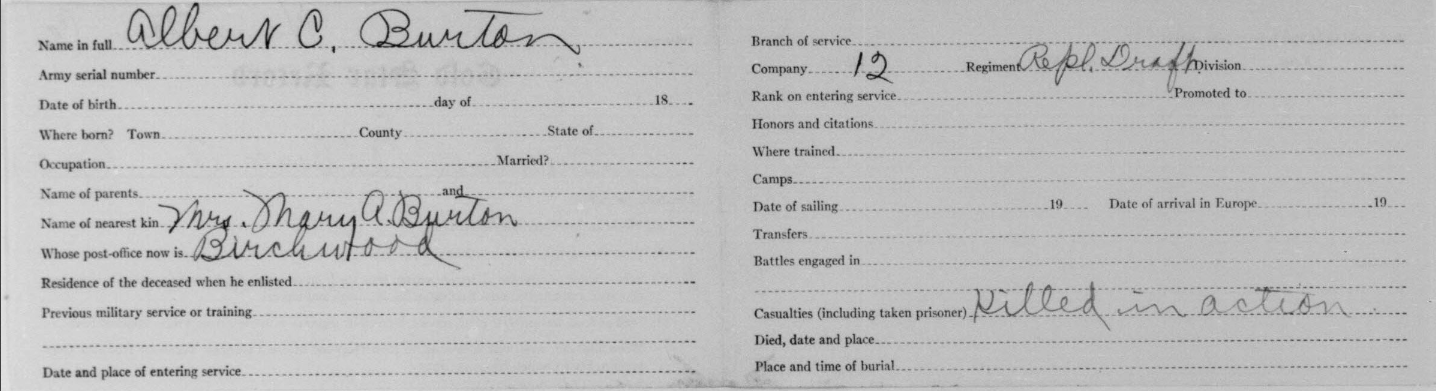 Name in full Albert C. Burton
Army serial number
Date of birth day of 18
Where born? Town County State of
Occupation Married?
Name of parents and
Name of nearest kin Mrs. Mary A. Burton
Whose post-office now is Birchwood
Residence of the deceased when he enlisted
Previous military service or training
Date and place of entering service
Branch of service
Company 12 Regiment Repl. Draft Division
Rank on entering service Promoted to
Honors and citations
Where trained
Camps
Date of sailing 19 Date of arrival in Europe 19
Transfers
Battles engaged in
Casualties (including taken prisoner) Killed in action
Died, date and place
Place and time of burial